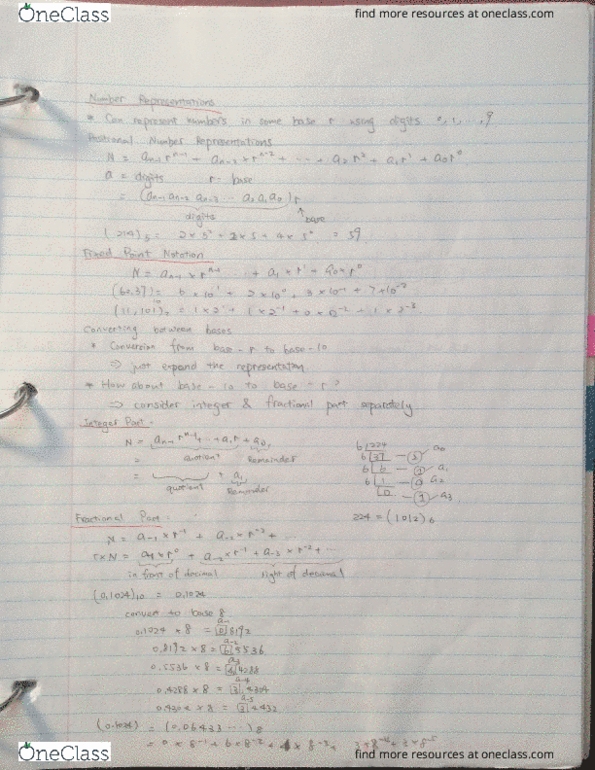 OneClass
find more resources at oneclass.com
Number Representations
* Can represent numbers in some base r using digits 0, 1, ..., 9
Positional Number Representations
N = aₙ₋₁rⁿ⁻¹ + aₙ₋₂ × rⁿ⁻² + ... + a₂r² + a₁r¹ + a₀r⁰
a = digits r - base
= (aₙ₋₁ aₙ₋₂ aₙ₋₃ ... a₂ a₁ a₀)r
digits base
(214)₅ = 2 × 5² + 2 × 5 + 4 × 5⁰ = 59
Fixed Point Notation
N = aₙ₋₁ × rⁿ⁻¹ ... + a₁ × r¹ + a₀ × r⁰
(60.37) = 6 × 10¹ + 0 × 10⁰ + 3 × 10⁻¹ + 7 × 10⁻²
(11.101)₂ = 1 × 2¹
Converting between bases
* Conversion from base - r to base - 10
⇒ just expand the representation
* How about base - 10 to base - r ?
⇒ consider integer & fractional part separately
Integer Part:
N = aₙ₋₁ rⁿ⁻¹ + ... + a₁r + a₀
quotient Remainder
= + a₁
quotient Remainder
6 224
6 37 — 5 a₀
6 6 — 1 a₁
6 1 — 0 a₂
0 — 1 a₃
224 = (1012)₆
Fractional Part:
N = a₋₁ × r⁻¹ + a₋₂ × r⁻² + ...
r × N = a₋₁ × r⁰ + a₋₂ × r⁻¹ + a₋₃ × r⁻² + ...
in front of decimal right of decimal
(0.1024)₁₀ = 0.1024
convert to base 8
a₋₁
0.1024 × 8 = 0.8192
a₋₂
0.8192 × 8 = 6.5536
a₋₃
0.5536 × 8 = 4.4288
a₋₄
0.4288 × 8 = 3.4304
a₋₅
× 8 = 3.4432
(0.1024) = (0.06433 ...)₈
= 0 × 8⁻¹ + 6 × 8⁻² + 4 × 8⁻³ + 3 × 8⁻⁴ + 3 × 8⁻⁵
OneClass
find more resources at oneclass.com